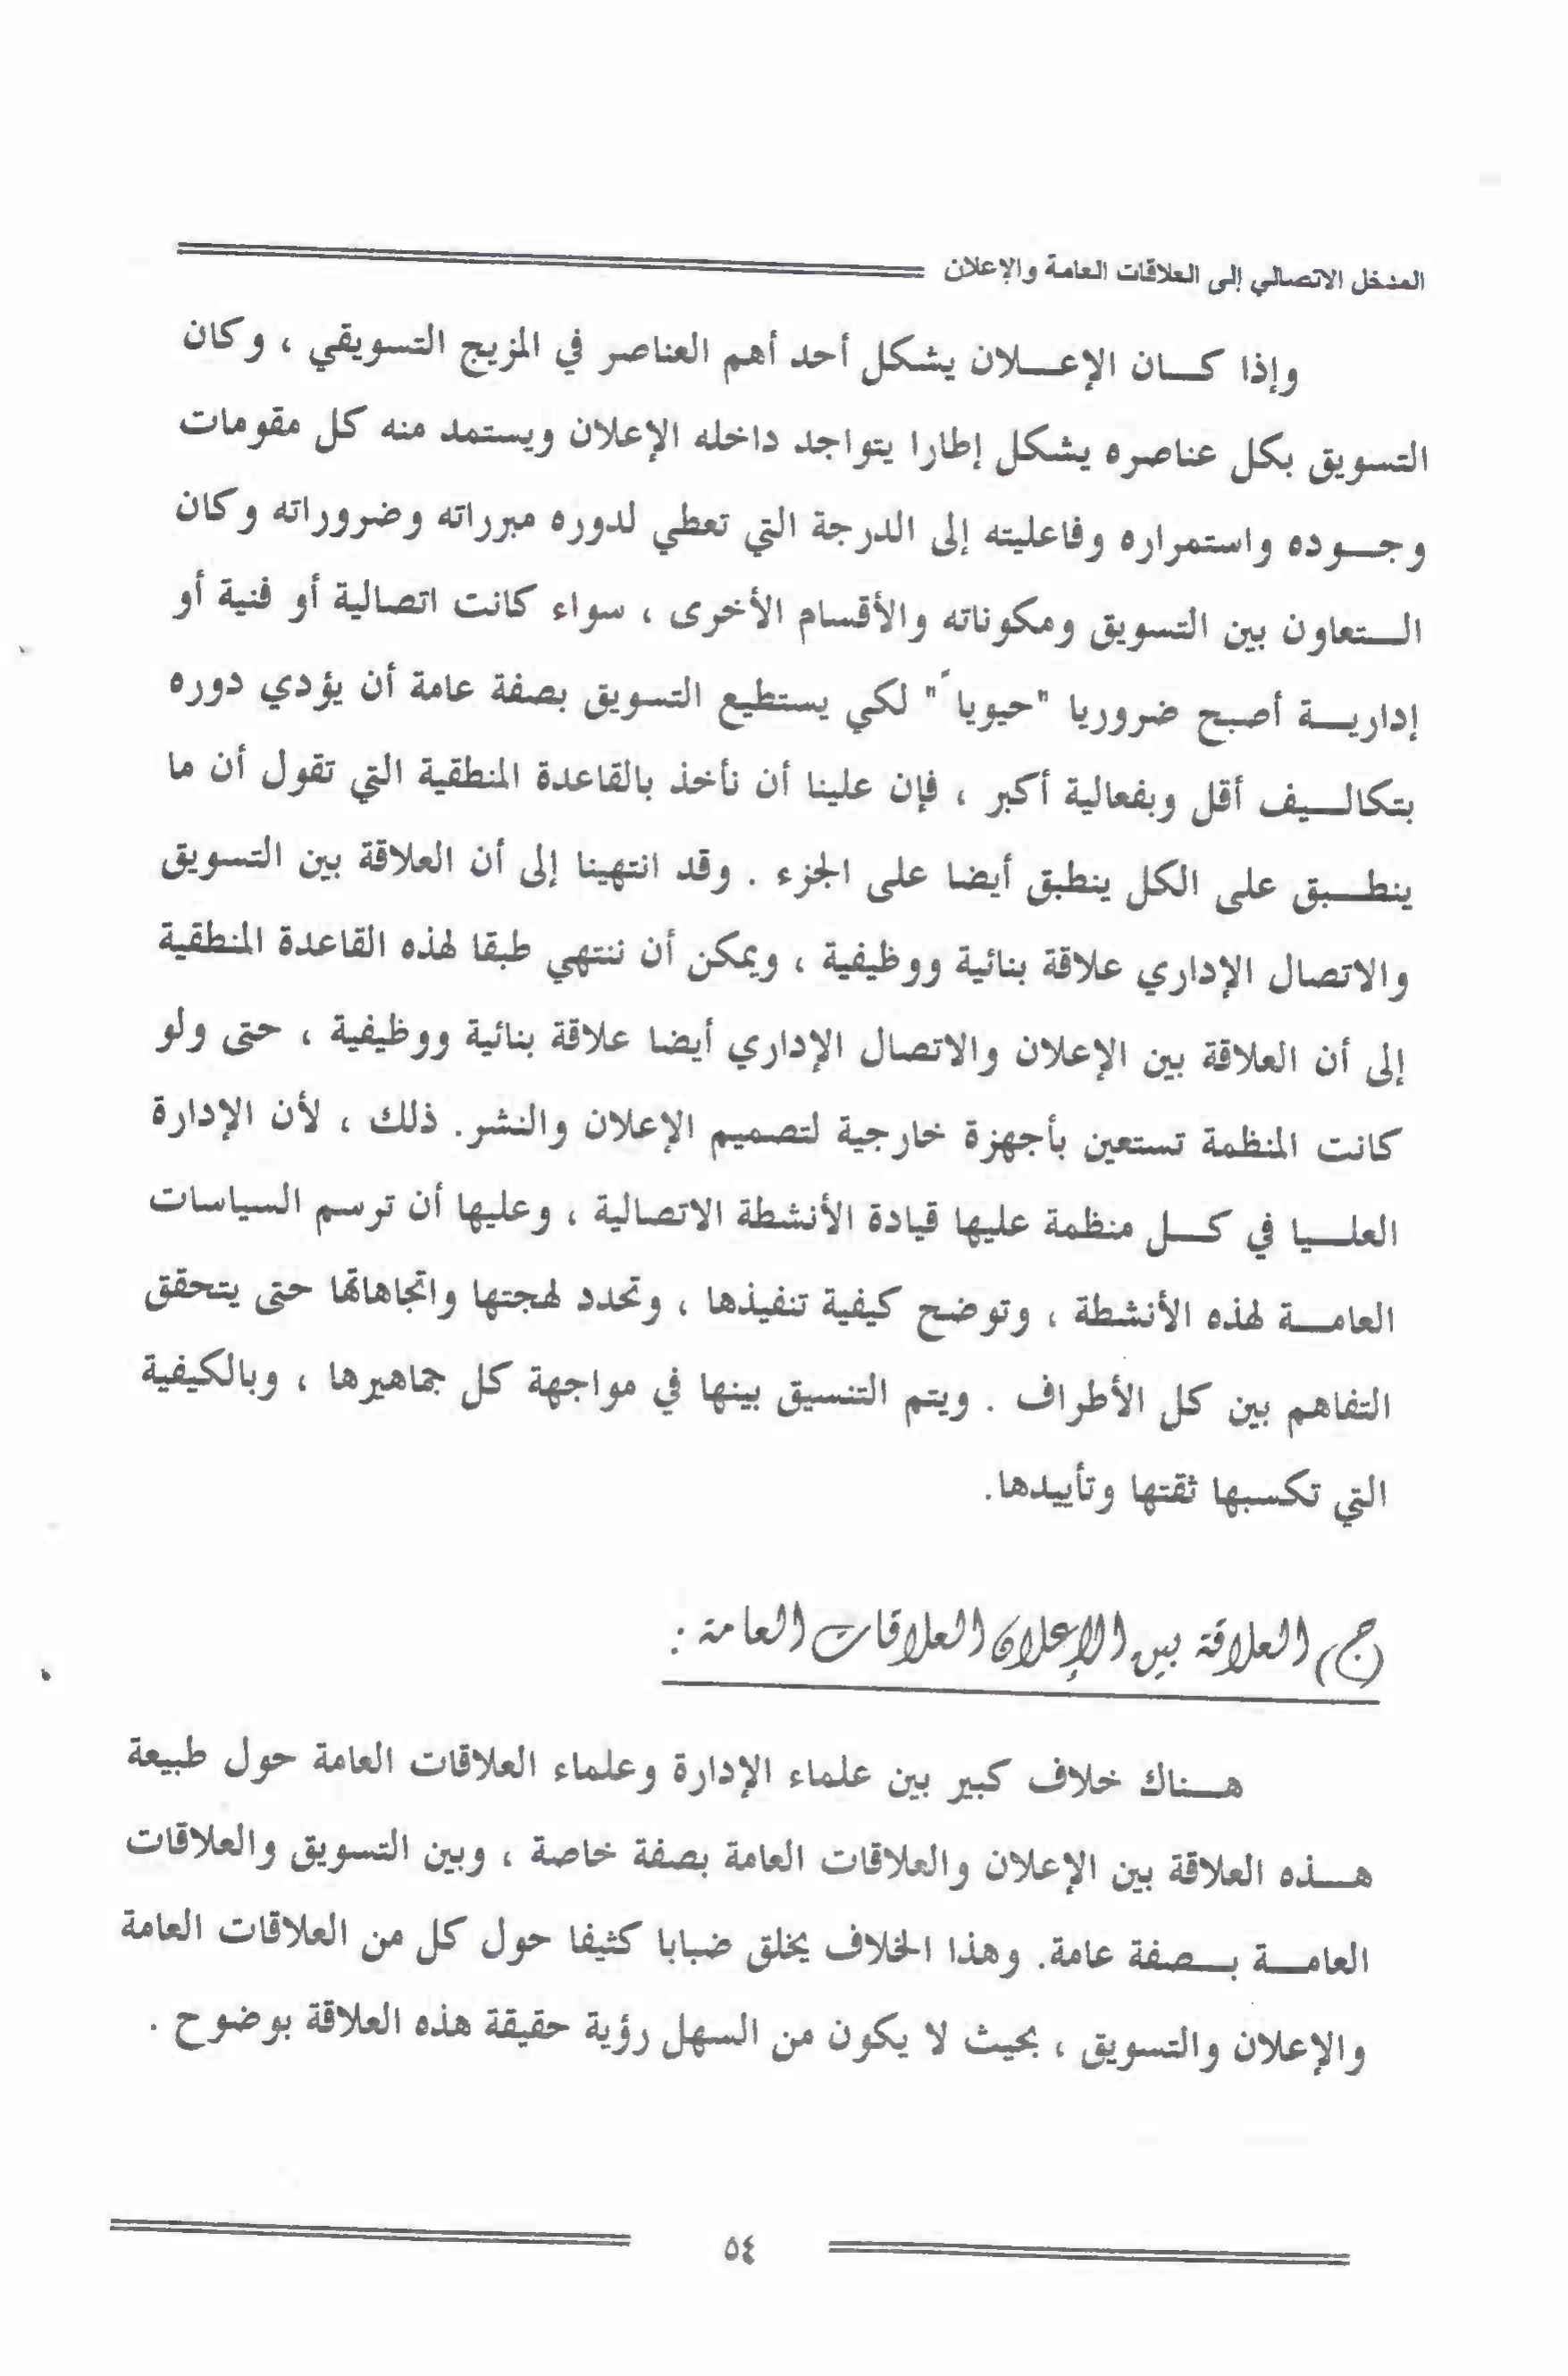 المدخل الاتصالي إلى العلاقات العامة والإعلان
وإذا كان الإعلان يشكل أحد أهم العناصر في المزيج التسويقي ، وكان
التسويق بكل عناصره يشكل إطارا يتواجد داخله الإعلان ويستمد منه كل مقومات
وجوده واستمراره وفاعليته إلى الدرجة التي تعطي لدوره مبرراته وضروراته وكان
التعاون بين التسويق ومكوناته والأقسام الأخرى ، سواء كانت اتصالية أو فنية أو
إدارية أصبح ضروريا "حيوياً" لكي يستطيع التسويق بصفة عامة أن يؤدي دوره
بتكاليف أقل وبفعالية أكبر ، فإن علينا أن نأخذ بالقاعدة المنطقية التي تقول أن ما
ينطبق على الكل ينطبق أيضا على الجزء . وقد انتهينا إلى أن العلاقة بين التسويق
والاتصال الإداري علاقة بنائية ووظيفية ، ويمكن أن ننتهي طبقا لهذه القاعدة المنطقية
إلى أن العلاقة بين الإعلان والاتصال الإداري أيضا علاقة بنائية ووظيفية ، حتى ولو
كانت المنظمة تستعين بأجهزة خارجية لتصميم الإعلان والنشر. ذلك ، لأن الإدارة
العليا في كل منظمة عليها قيادة الأنشطة الاتصالية ، وعليها أن ترسم السياسات
العامة لهذه الأنشطة ، وتوضح كيفية تنفيذها ، وتحدد لهجتها واتجاهاتها حتى يتحقق
التفاهم بين كل الأطراف . ويتم التنسيق بينها في مواجهة كل جماهيرها ، وبالكيفية
التي تكسبها ثقتها وتأييدها.
(ج) العلاقة بين الإعلان العلاقات العامة :
هناك خلاف كبير بين علماء الإدارة وعلماء العلاقات العامة حول طبيعة
هذه العلاقة بين الإعلان والعلاقات العامة بصفة خاصة ، وبين التسويق والعلاقات
العامة بصفة عامة. وهذا الخلاف يخلق ضبابا كثيفا حول كل من العلاقات العامة
والإعلان والتسويق ، بحيث لا يكون من السهل رؤية حقيقة هذه العلاقة بوضوح .
٥٤